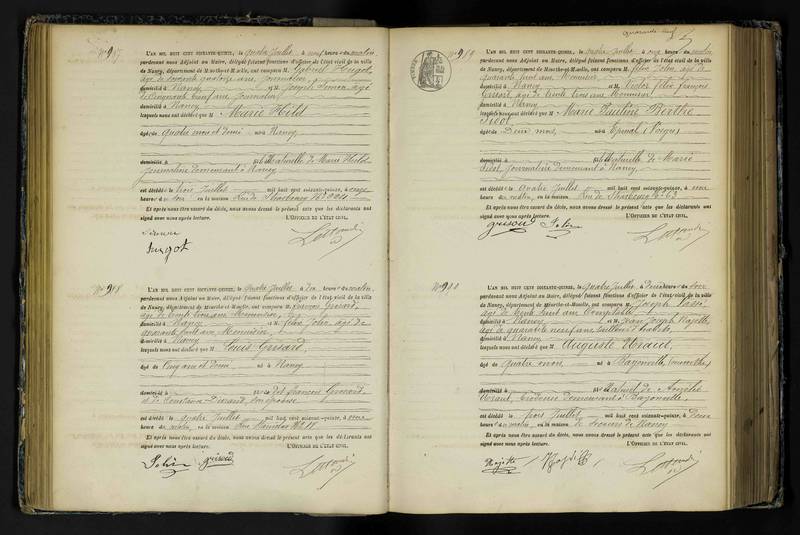 N° 987
L'AN MIL HUIT CENT SOIXANTE-QUINZE, le quatre Juillet, à neuf heures du matin
pardevant nous Adjoint au Maire, délégué faisant fonctions d'officier de l'état civil de la ville
de Nancy, département de Meurthe-et-Moselle, ont comparu M. Gabriel Hugot,
âgé de soixante quatorze ans, journalier,
domicilié à Nancy et M. Joseph Simon âgé
de cinquante huit ans, journalier,
domicilié à Nancy
lesquels nous ont déclaré que M Marie Hild
âgé de quatre mois et demi né à Nancy
domicilié à fille naturelle de Marie Hild
journalière demeurant à Nancy
est décédé le trois Juillet mil huit cent soixante-quinze, à onze
heures du soir, en la maison Rue de Strasbourg N°
Et après nous être assuré du décès, nous avons dressé le présent acte que les déclarants ont
signé avec nous après lecture. L'OFFICIER DE L'ÉTAT CIVIL,
Simon
Hugot
N° 988
L'AN MIL HUIT CENT SOIXANTE-QUINZE, le quatre Juillet, à dix heures du matin,
pardevant nous Adjoint au Maire, délégué faisant fonctions d'officier de l'état civil de la ville
de Nancy, département de Meurthe-et-Moselle, ont comparu M. François Grisard,
âgé de trente trois ans, Menuisier,
domicilié à Nancy et M. Félix Jolin, âgé de
quarante huit ans Menuisier,
domicilié à Nancy
lesquels nous ont déclaré que M Louis Grisard,
âgé de Cinq ans et demi né à Nancy
domicilié à fils de François Grisard,
et de Constance son épouse
est décédé le quatre Juillet mil huit cent soixante-quinze, à une
heure du matin, en la maison Rue Stanislas N°
Et après nous être assuré du décès, nous avons dressé le présent acte que les déclarants ont
signé avec nous après lecture. L'OFFICIER DE L'ÉTAT CIVIL,
Jolin grisard
quarante neuf
N° 989
L'AN MIL HUIT CENT SOIXANTE-QUINZE, le quatre Juillet, à dix heures du matin
pardevant nous Adjoint au Maire, délégué faisant fonctions d'officier de l'état civil de la ville
de Nancy, département de Meurthe-et-Moselle, ont comparu M. Félix Jolin, âgé de
quarante huit ans Menuisier
domicilié à Nancy et M. François
Grisard, âgé de trente trois ans Menuisier
domicilié à Nancy
lesquels nous ont déclaré que M Marie Pauline Berthe
Didot
âgé de Deux ans, né à Epinal (Vosges)
domicilié à fille naturelle de Marie
Didot journalière demeurant à Nancy
est décédé le quatre Juillet mil huit cent soixante-quinze, à une
heure du matin, en la maison Rue de Strasbourg N° 63
Et après nous être assuré du décès, nous avons dressé le présent acte que les déclarants ont
signé avec nous après lecture. L'OFFICIER DE L'ÉTAT CIVIL,
grisard Jolin
N° 990
L'AN MIL HUIT CENT SOIXANTE-QUINZE, le quatre Juillet, à deux heures du soir
pardevant nous Adjoint au Maire, délégué faisant fonctions d'officier de l'état civil de la ville
de Nancy, département de Meurthe-et-Moselle, ont comparu M. Joseph
âgé de trente huit ans Comptable
domicilié à Nancy et M. Jean Joseph Rajette,
âgé de quarante neuf ans tailleur d'habits,
domicilié à Nancy
lesquels nous ont déclaré que M Auguste
âgé de quatre mois né à Bayonville
domicilié à fils naturel de
demeurant à Bayonville
est décédé le trois Juillet mil huit cent soixante-quinze, à Deux
heures du matin, en la maison de Secours de Nancy
Et après nous être assuré du décès, nous avons dressé le présent acte que les déclarants ont
signé avec nous après lecture. L'OFFICIER DE L'ÉTAT CIVIL,
Rajette